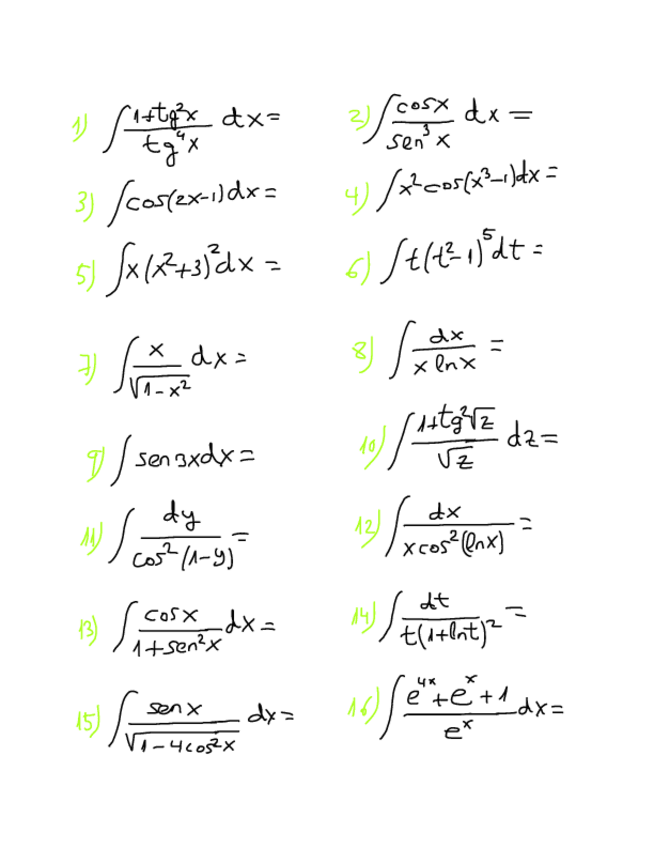 1) ∫ (1+tg²x)/(tg⁴x) dx=
2) ∫ (cosx)/(sen³x) dx =
3) ∫cos(2x-1)dx =
4) ∫x²cos(x³-1)dx =
5) ∫x(x²+3)²dx =
6) ∫t(t²-1)⁵dt =
7) ∫ x/√(1-x²) dx =
8) ∫ dx/(x lnx) =
9) ∫sen3xdx =
10) ∫ (1+tg²√z)/√z dz=
11) ∫ dy/(cos²(1-y)) =
12) ∫ dx/(xcos²(lnx)) =
13) ∫ cosx/(1+sen²x) dx =
14) ∫ dt/(t(1+lnt)²) =
15) ∫ senx/√(1-4cos²x) dx =
16) ∫ (e⁴ˣ+eˣ+1)/eˣ dx=